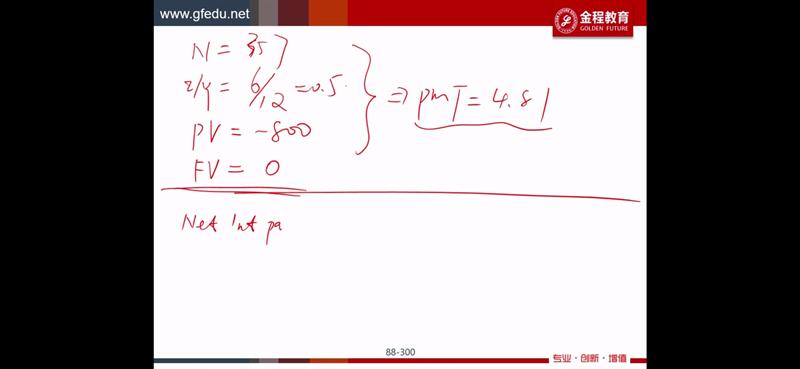 www.gfedu.net
金程教育
GOLDEN FUTURE
N = 357
I/Y = 6/12 = 0.5
PV = -800
FV = 0
⇒ PMT = 4.81
Net Int pa
88-300
专业·创新·增值